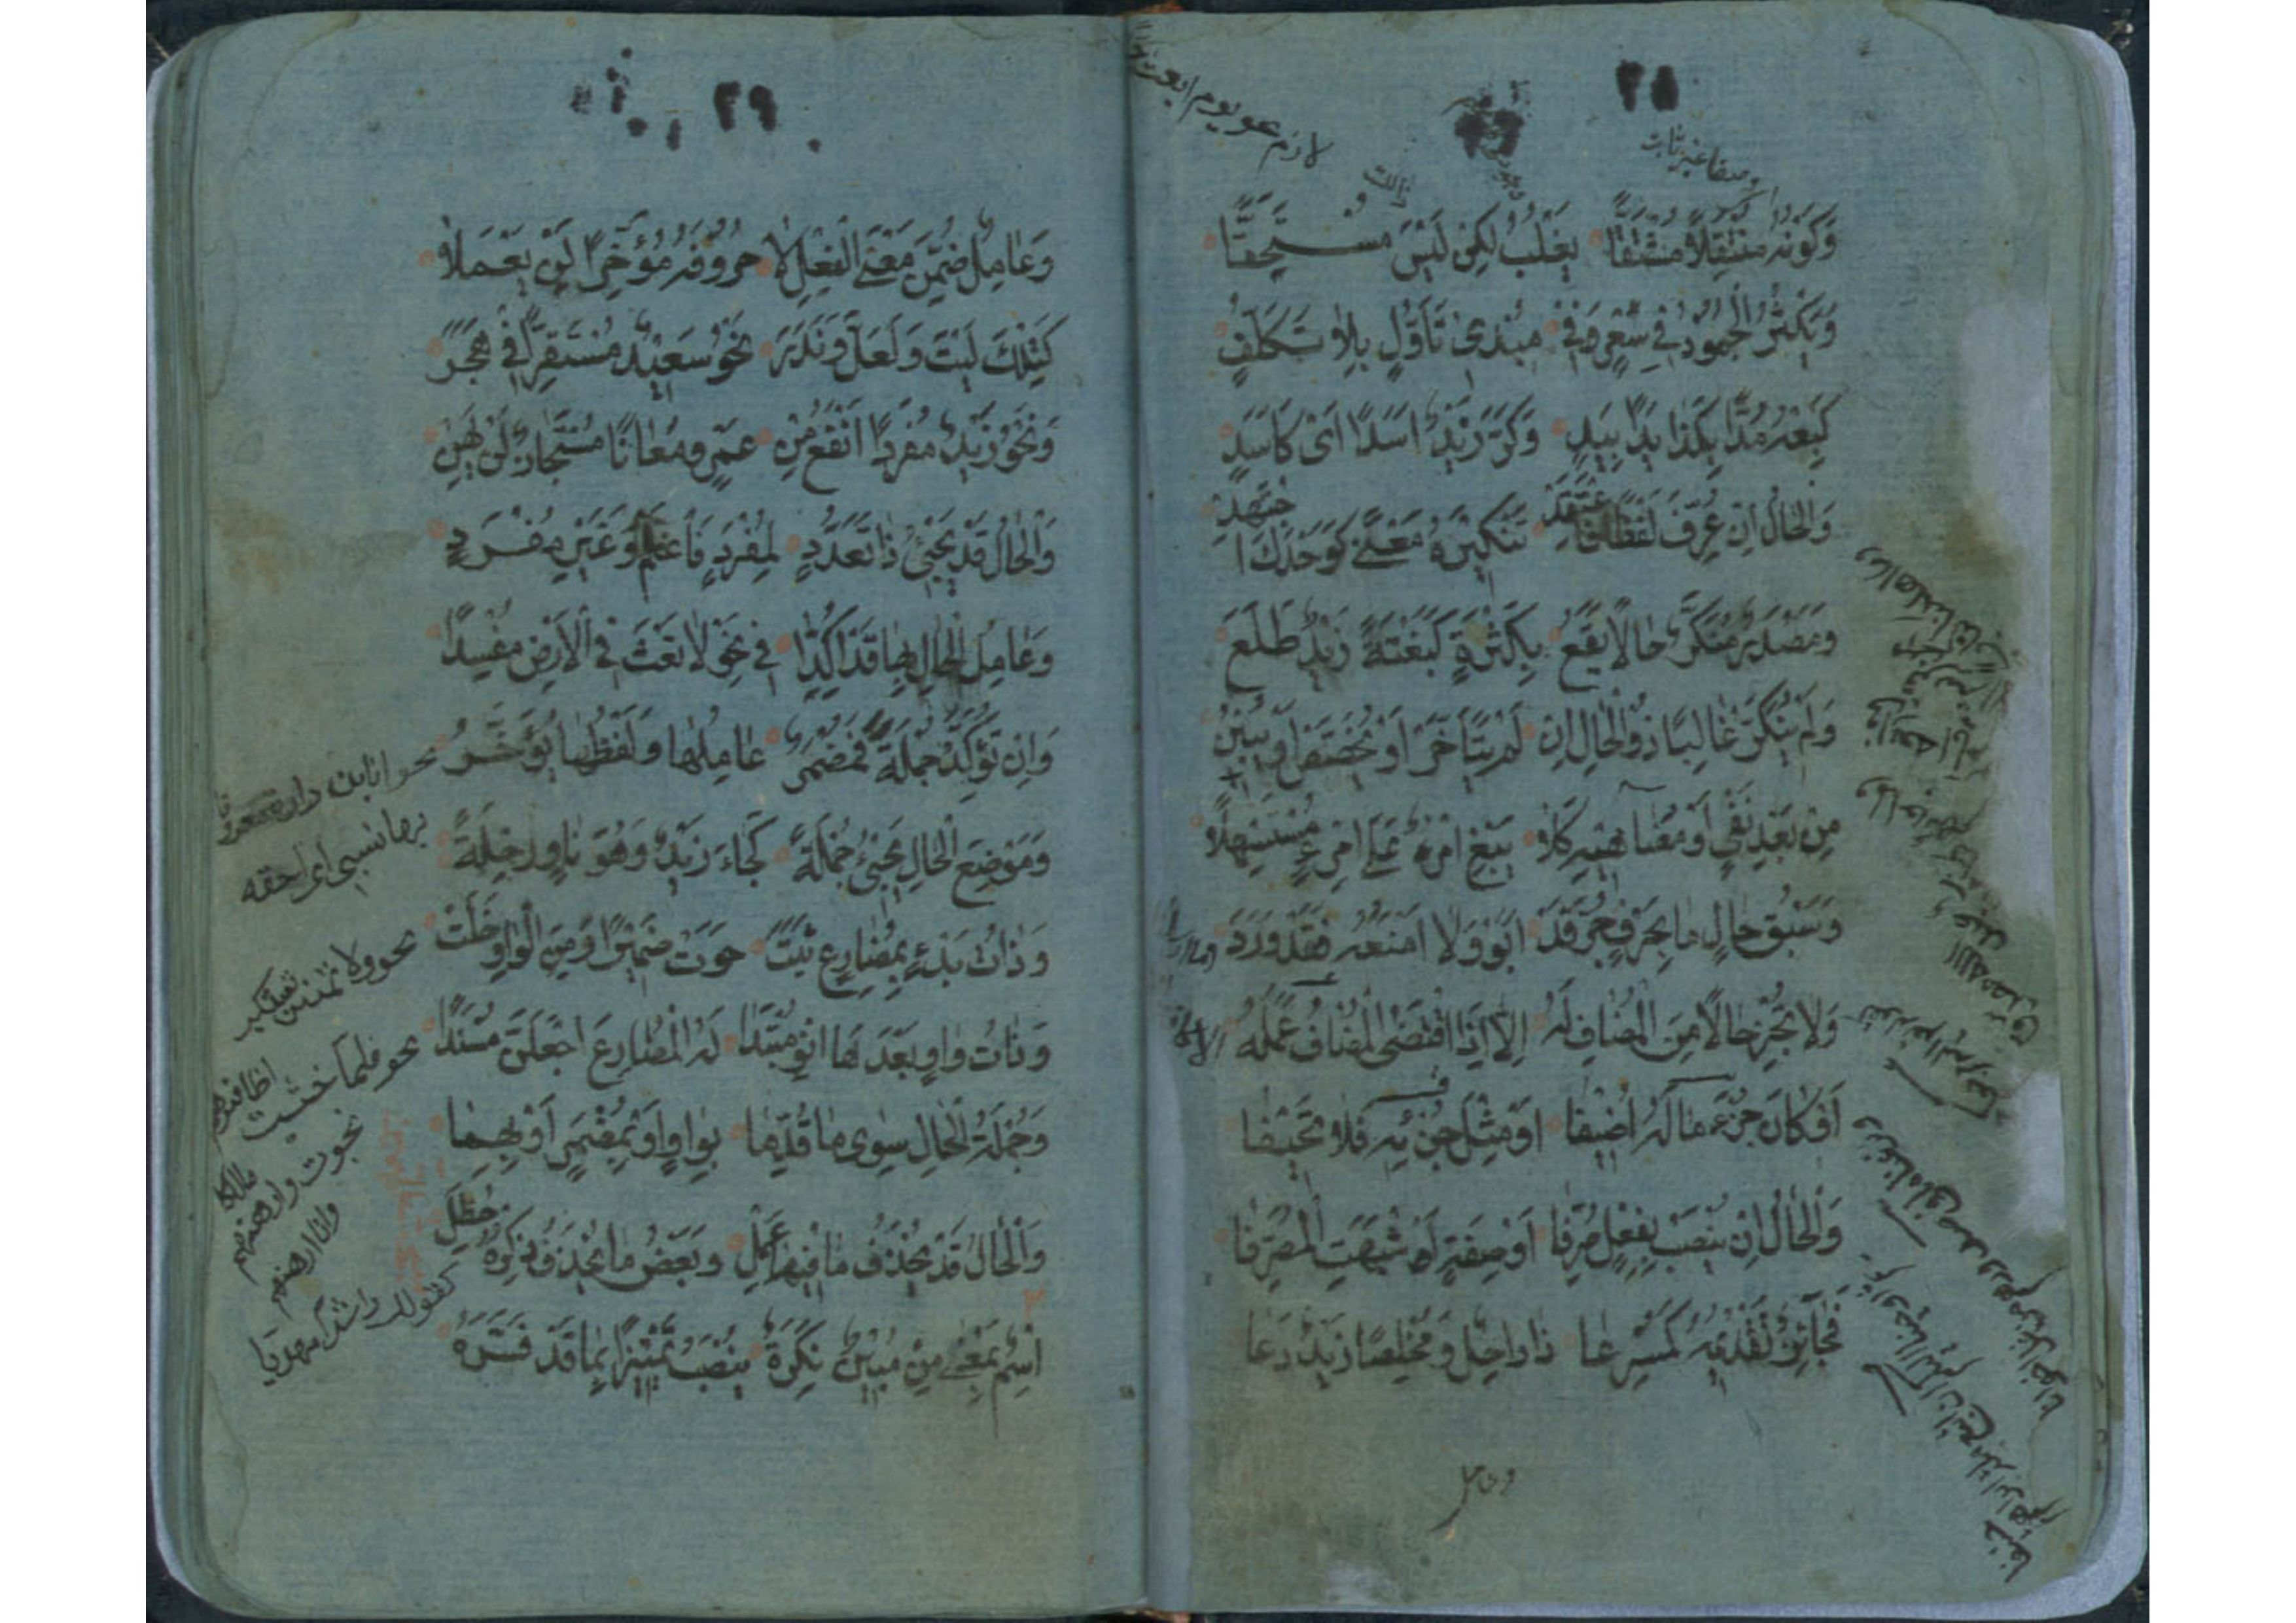 ٢٨
وصفا غير ثابت
لازم عو يوم ابعث
وَكَوْنُهُ مُنْتَقِلاً مُشْتَقًّا يَغْلِبُ لَكِنْ لَيْسَ مُسْتَحِقًّا
وَيَكْثُرُ الْجُمُودُ فِي سِعْرٍ وَفِي مُبْدِي تَأَوُّلٍ بِلَا تَكَلُّفٍ
كَبِعْهُ مُدًّا بِكَذَا يَدًا بِيَدٍ وَكَرَّ زَيْدٌ اَسَدًا اَيْ كَاَسَدٍ
وَالْحَالُ اِنْ عُرِّفَ لَفْظًا فَاعْتَقِدْ تَنْكِيرَهُ مَعْنًى كَوَحْدَكَ اجْتَهِدْ
وَمَصْدَرٌ مُنَكَّرٌ حَالاً يَقَعْ بِكَثْرَةٍ كَبَغْتَةً زَيْدٌ طَلَعَ
وَلَمْ يُنَكَّرْ غَالِبًا ذُو الْحَالِ اِنْ لَمْ يَتَأَخَّرْ اَوْ يُخَصَّصْ اَوْ يَبِنْ
مِنْ بَعْدِ نَفْيٍ اَوْ مُضَاهِيهِ كَلَا يَبْغِ امْرُؤٌ عَلَى امْرِئٍ مُسْتَسْهِلًا
وَسَبْقَ حَالٍ مَا بِحَرْفٍ جُرَّ قَدْ اَبَوْا وَلَا اَمْنَعُهُ فَقَدْ وَرَدَ
وَلَا تُجِزْ حَالاً مِنَ الْمُضَافِ لَهُ اِلَّا اِذَا اقْتَضَى الْمُضَافُ عَمَلَهُ
اَوْ كَانَ جُزْءَ مَا لَهُ اُضِيفَا اَوْ مِثْلَ جُزْئِهِ فَلَا تَحِيفَا
وَالْحَالُ اِنْ يُنْصَبْ بِفِعْلٍ صُرِّفَا اَوْ صِفَةٍ اَشْبَهَتِ الْمُصَرَّفَا
فَجَائِزٌ تَقْدِيمُهُ كَمُسْرِعًا ذَا رَاحِلٌ وَمُخْلِصًا زَيْدٌ دَعَا
وعامل
٢٩
وَعَامِلٌ ضُمِّنَ مَعْنَى الْفِعْلِ لَا حُرُوفَهُ مُؤَخَّرًا لَنْ يَعْمَلَا
كَتِلْكَ لَيْتَ وَلَعَلَّ وَنَدَرَ نَحْوُ سَعِيدٌ مُسْتَقِرًّا فِي هَجَرَ
وَنَحْوُ زَيْدٌ مُفْرَدًا اَنْفَعُ مِنْ عَمْرٍو مُعَانًا مُسْتَجَازٌ لَنْ يَهِنْ
وَالْحَالُ قَدْ يَجِيءُ ذَا تَعَدُّدٍ لِمُفْرَدٍ فَاعْلَمْ وَغَيْرِ مُفْرَدٍ
وَعَامِلُ الْحَالِ بِهَا قَدْ اُكِّدَا فِي نَحْوِ لَا تَعْثَ فِي الْاَرْضِ مُفْسِدًا
وَاِنْ تُؤَكِّدْ جُمْلَةً فَمُضْمَرٌ عَامِلُهَا وَلَفْظُهَا يُؤَخَّرُ
وَمَوْضِعَ الْحَالِ يَجِيءُ جُمْلَةً كَجَاءَ زَيْدٌ وَهُوَ نَاوٍ رِحْلَةً
وَذَاتُ بَدْءٍ بِمُضَارِعٍ ثَبَتَ حَوَتْ ضَمِيرًا وَمِنَ الْوَاوِ خَلَتْ
وَذَاتُ وَاوٍ بَعْدَهَا انْوِ مُبْتَدَا لَهُ الْمُضَارِعَ اجْعَلَنَّ مُسْنَدًا
وَجُمْلَةُ الْحَالِ سِوَى مَا قُدِّمَا بِوَاوٍ اَوْ بِمُضْمَرٍ اَوْ بِهِمَا
وَالْحَالُ قَدْ يُحْذَفُ مَا فِيهَا عَمِلَ وَبَعْضُ مَا يُحْذَفُ ذِكْرُهُ حُظِلَ
اِسْمٌ بِمَعْنَى مِنْ مُبِينٌ نَكِرَةٌ يُنْصَبُ تَمْيِيزًا بِمَا قَدْ فَسَّرَهُ
نحو انا ابن دارة معروفا
بها نسبي اى احقه
نحو ولا تمنن تستكثر
نحو فلما خشيت اظافيرهم
نجوت وارهنهم مالكا
وانا ارهنهم
كقولك راشدا مهديا